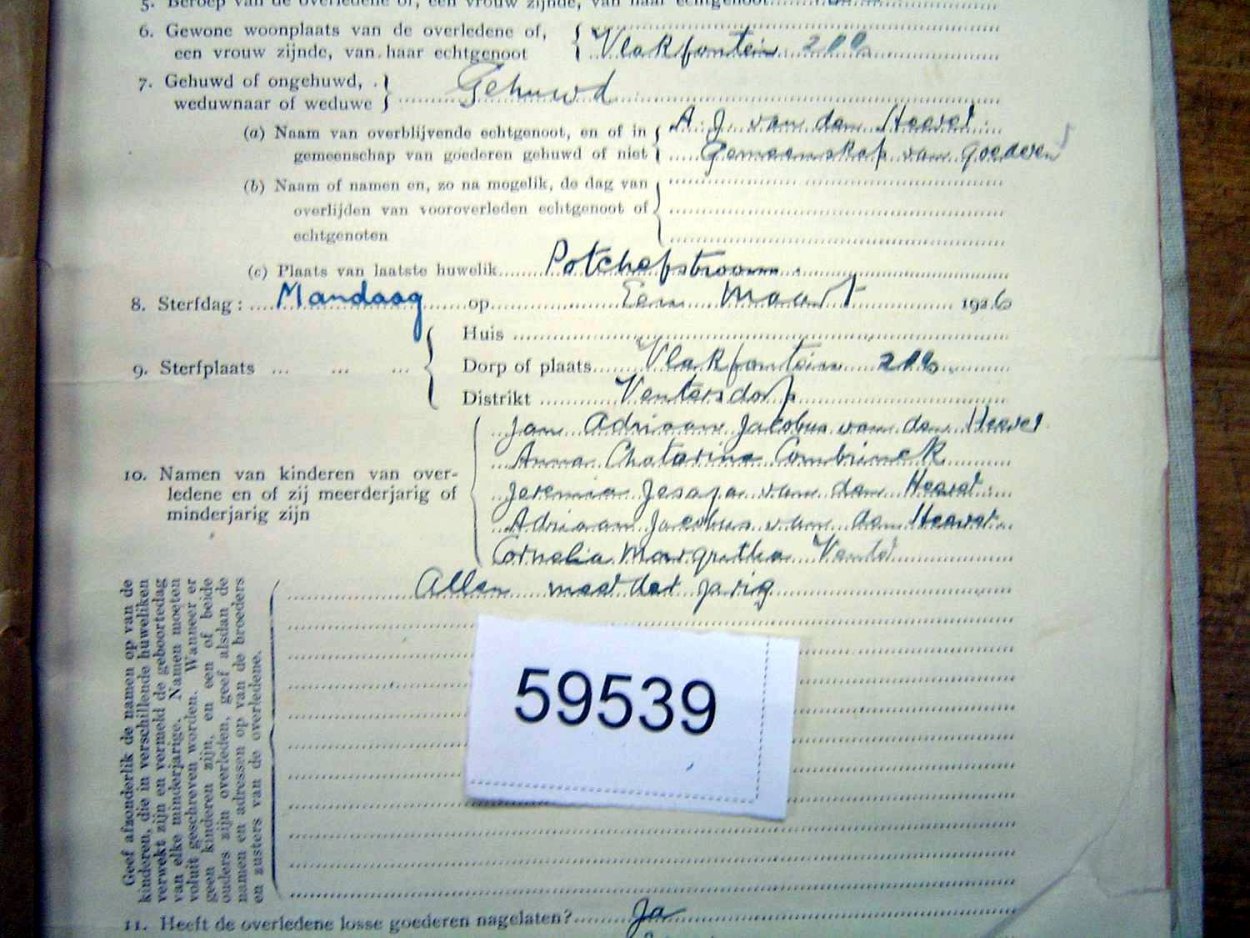 5. Beroep van de overledene of, een vrouw zijnde, van haar echtgenoot
6. Gewone woonplaats van de overledene of, een vrouw zijnde, van haar echtgenoot Vlakfontein
7. Gehuwd of ongehuwd, weduwnaar of weduwe Gehuwd
(a) Naam van overblijvende echtgenoot, en of in A. J. van den Heever
gemeenschap van goederen gehuwd of niet Gemeenskap van goederen
(b) Naam of namen en, zo na mogelik, de dag van
overlijden van vooroverleden echtgenoot of
echtgenoten
(c) Plaats van laatste huwelik Potchefstroom
8. Sterfdag: Mandaag op Een Maart 1926
9. Sterfplaats ... ... ...
Huis
Dorp of plaats Vlakfontein
Distrikt Ventersdorp
10. Namen van kinderen van over-
ledene en of zij meerderjarig of
minderjarig zijn
Jan Adriaan Jacobus van den Heever
Anna Chatarina Combrinck
Jeremia Jesaja van den Heever
Adriaan Jacobus van den Heever
Cornelia Margritha
Allen meerder jarig
Geef afzonderlik de namen op van de
kinderen, die in verschillende huweliken
verwekt zijn en vermeld de geboortedag
van elke minderjarige. Namen moeten
voluit geschreven worden. Wanneer er
geen kinderen zijn, en een of beide
ouders zijn overleden, geef alsdan de
namen en adressen op van de broeders
en zusters van de overledene.
59539
11. Heeft de overledene losse goederen nagelaten? Ja